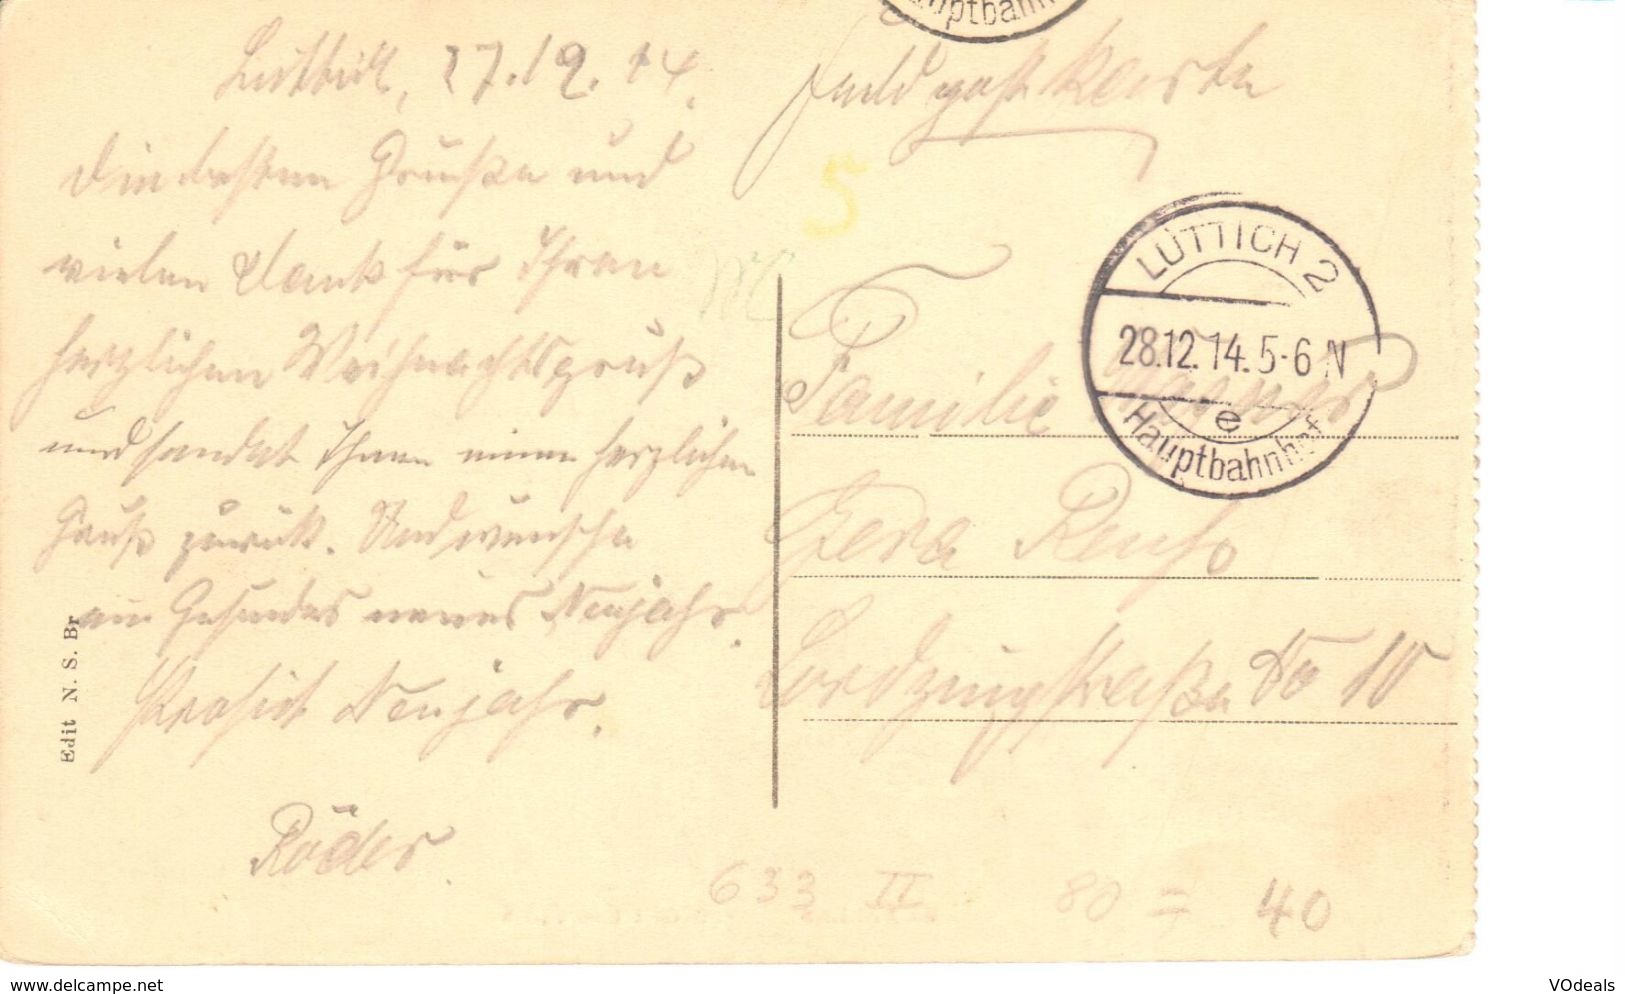 Hauptbahnh
Lüttich, 27.12.14.
Feldpostkarte
Die besten Grüße und
vielen Dank für Ihren
herzlichen Weihnachtsgruß
und sendet Ihnen einen herzlichen
Gruß zurück. Und wünsche
ein Gesundes neues Neujahr.
Prosit Neujahr.
Röder.
5
LÜTTICH 2
28.12.14.5-6 N
e
Hauptbahnhof
Familie
Gera Reuß
Lordzingstraße No 10
Edit N. S. Br
633 II 80 = 40
www.delcampe.net
VOdeals